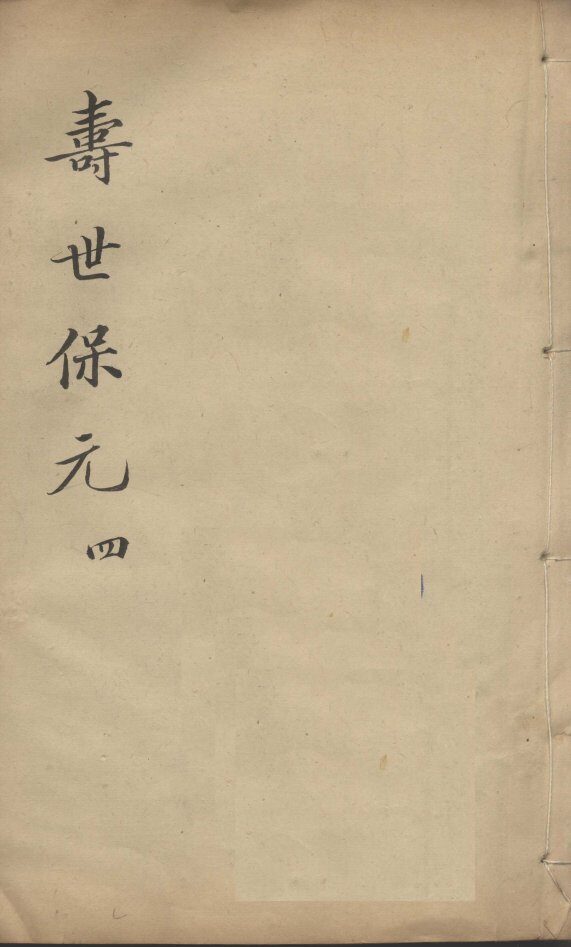 壽世保元 四